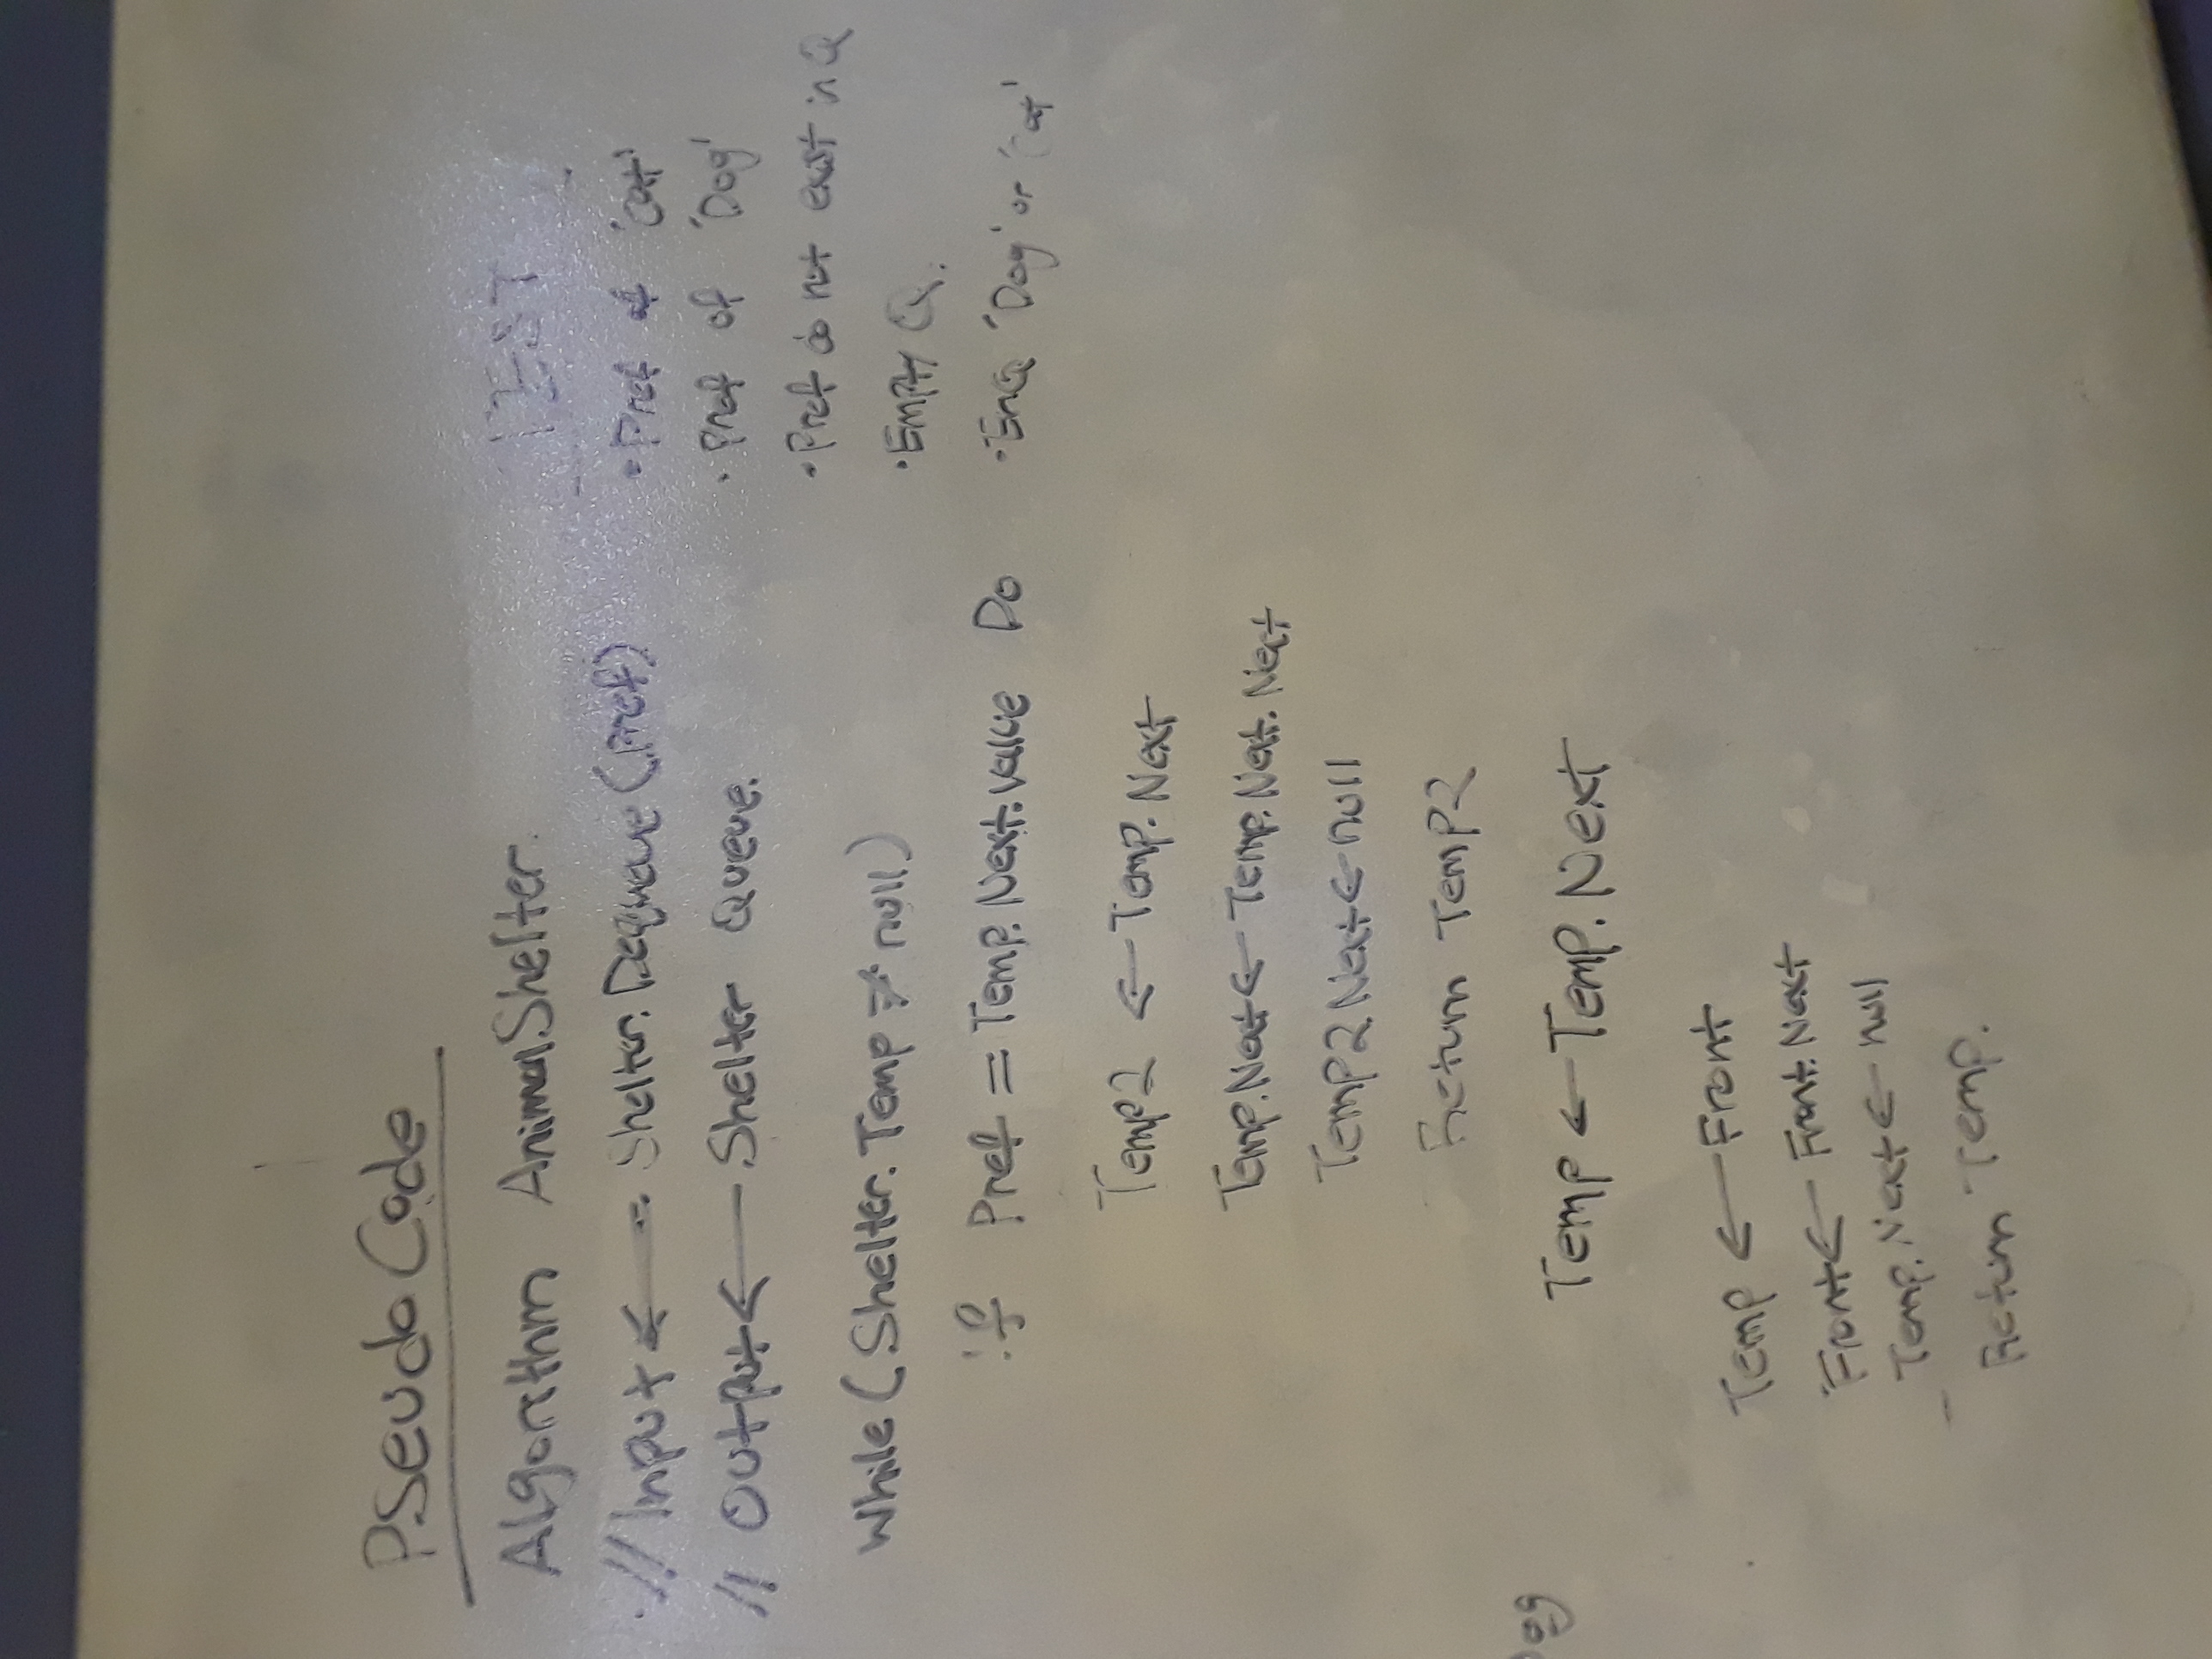 Pseudo Code
Algorithm AnimalShelter.
// Input ← Shelter.Dequeue(Pref)
// Output ← Shelter Queue.
While (Shelter.Temp ≠ null)
if Pref = Temp.Next.value Do
Temp2 ← Temp.Next
Temp.Next ← Temp.Next.Next
Temp2.Next ← null
Return Temp2
Temp ← Temp.Next
Temp ← Front
Front ← Front.Next
Temp.Next ← null
Return Temp.
TEST
· Pref of 'Cat'
· Pref of 'Dog'
· Pref do not exist in Q
· Empty Q.
· EnQ 'Dog' or 'Cat'